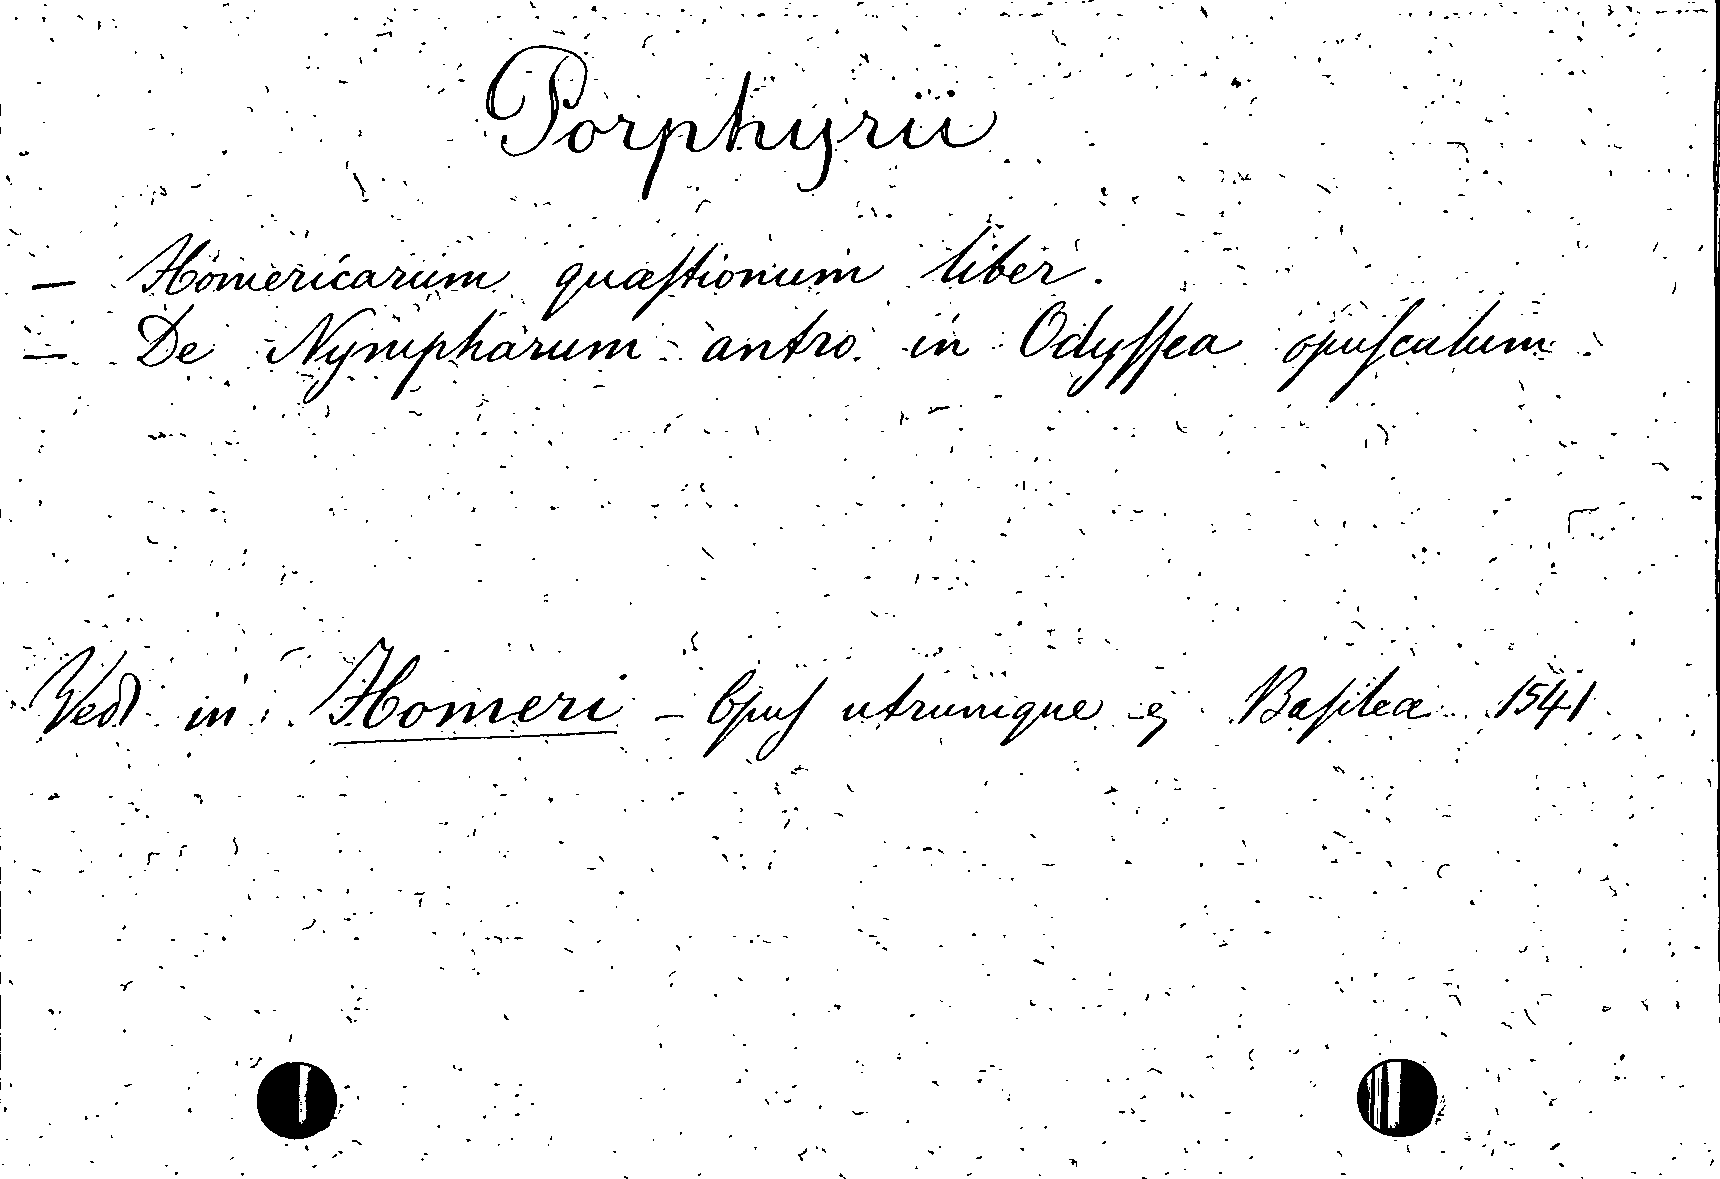 Porphyrii
— Homericarum quæſtionum liber.
— De Nympharum antro in Odyſſea opuſculum.
Vedi in Homeri – Opuſ utrumque &c Baſileæ 1541